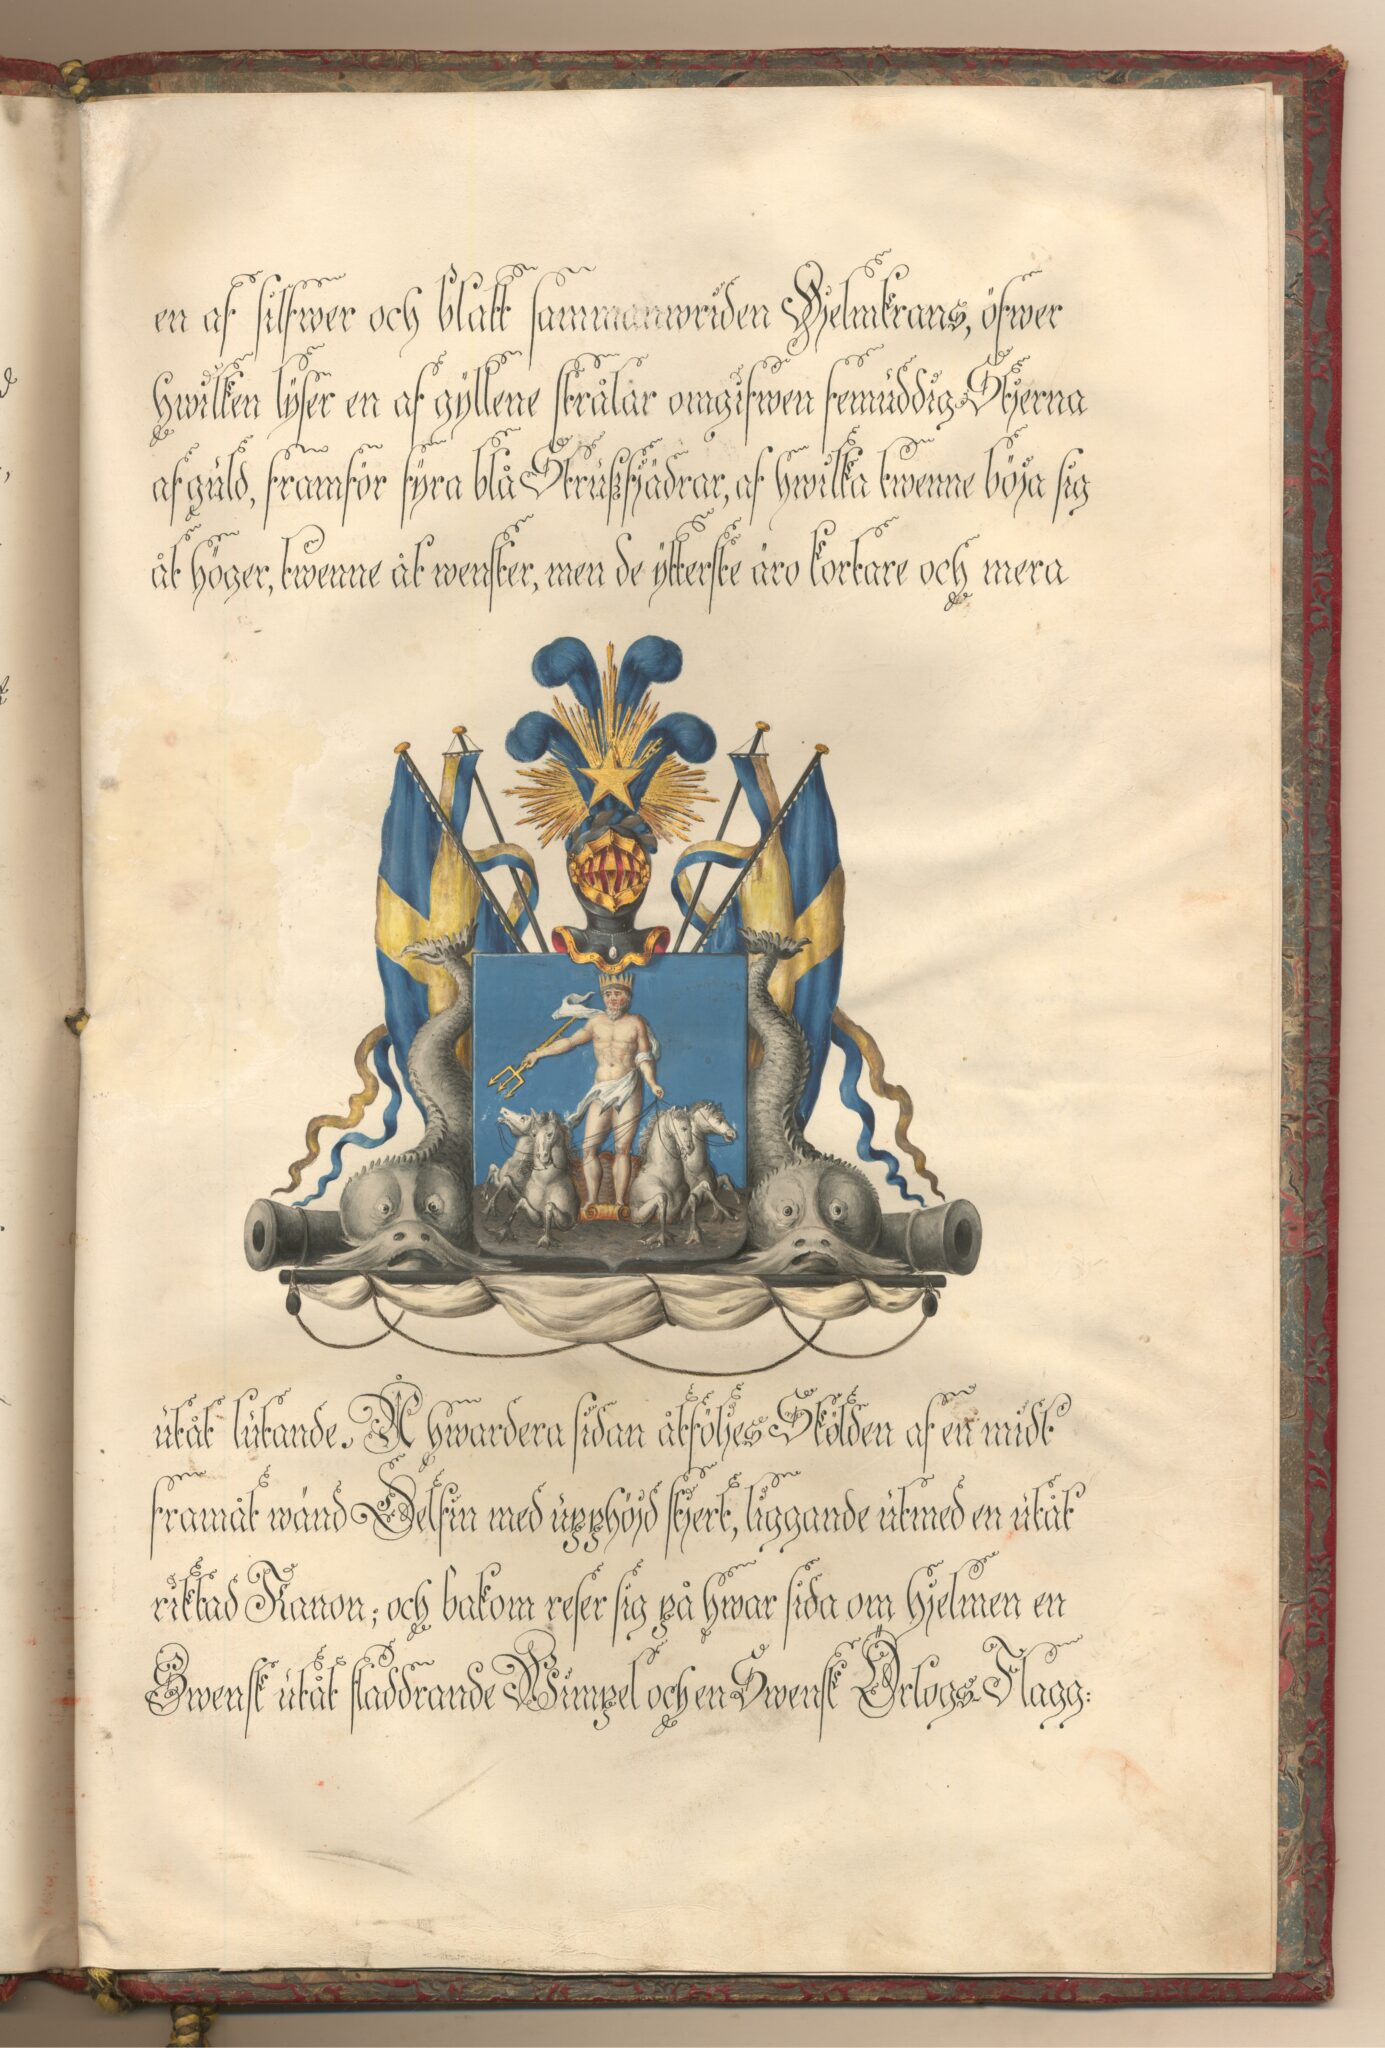 en af silfwer och blatt sammanwriden Hjelmkrans, öfwer
hwilken lyser en af gyllene strålar omgifwen femuddig Stjerna
af guld, framför fyra blå Strußfjädrar, af hwilka twenne böja sig
åt höger, twenne åt wenster, men de ytterste äro kortare och mera
utåt lutande. Å hwardera sidan åtföljes Skölden af en midt
framåt wänd Delfin med upphöjd stjert, liggande utmed en utåt
riktad Kanon; och bakom reser sig på hwar sida om hjelmen en
Swensk utåt fladdrande Wimpel och en Swensk Örlogs-Flagg: